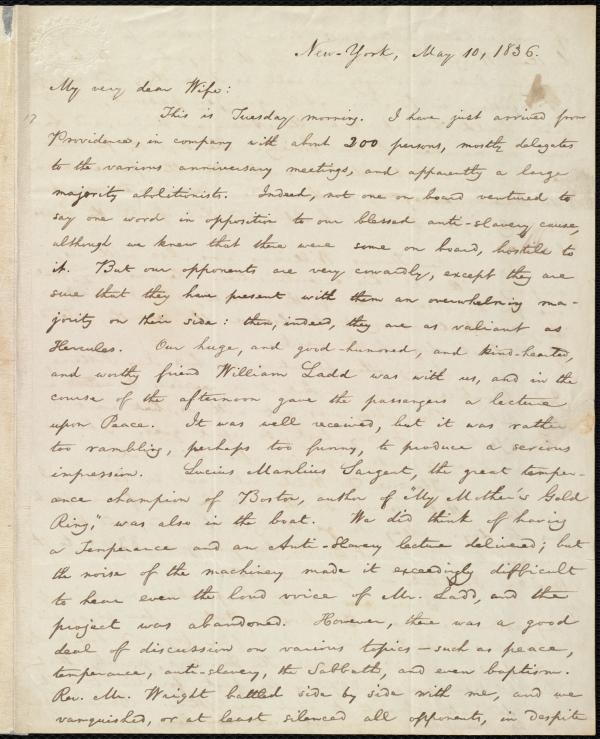 New-York, May 10, 1836.
My very dear Wife:
This is Tuesday morning. I have just arrived from
Providence, in company with about 200 persons, mostly delegates
to the various anniversary meetings, and apparently a large
majority abolitionists. Indeed, not one on board ventured to
say one word in opposition to our blessed anti-slavery cause,
although we knew that there were some on board, hostile to
it. But our opponents are very cowardly, except they are
sure that they have present with them an overwhelming ma-
jority on their side: then, indeed, they are as valiant as
Hercules. Our huge, and good-humored, and kind-hearted,
and worthy friend William Ladd was with us, and in the
course of the afternoon gave the passengers a lecture
upon Peace. It was well received, but it was rather
too rambling, perhaps too funny, to produce a serious
impression. Lucius Manlius Sargent, the great temper-
ance champion of Boston, author of "My Mother's Gold
Ring," was also in the boat. We did think of having
a Temperance and an Anti-Slavery lecture delivered; but
the noise of the machinery made it exceedingly difficult
to hear even the loud voice of Mr. Ladd, and the
project was abandoned. However, there was a good
deal of discussion on various topics—such as peace,
temperance, anti-slavery, the Sabbath, and even baptism.
Rev. Mr. Wright battled side by side with me, and we
vanquished, or at least silenced all opponents, in despite